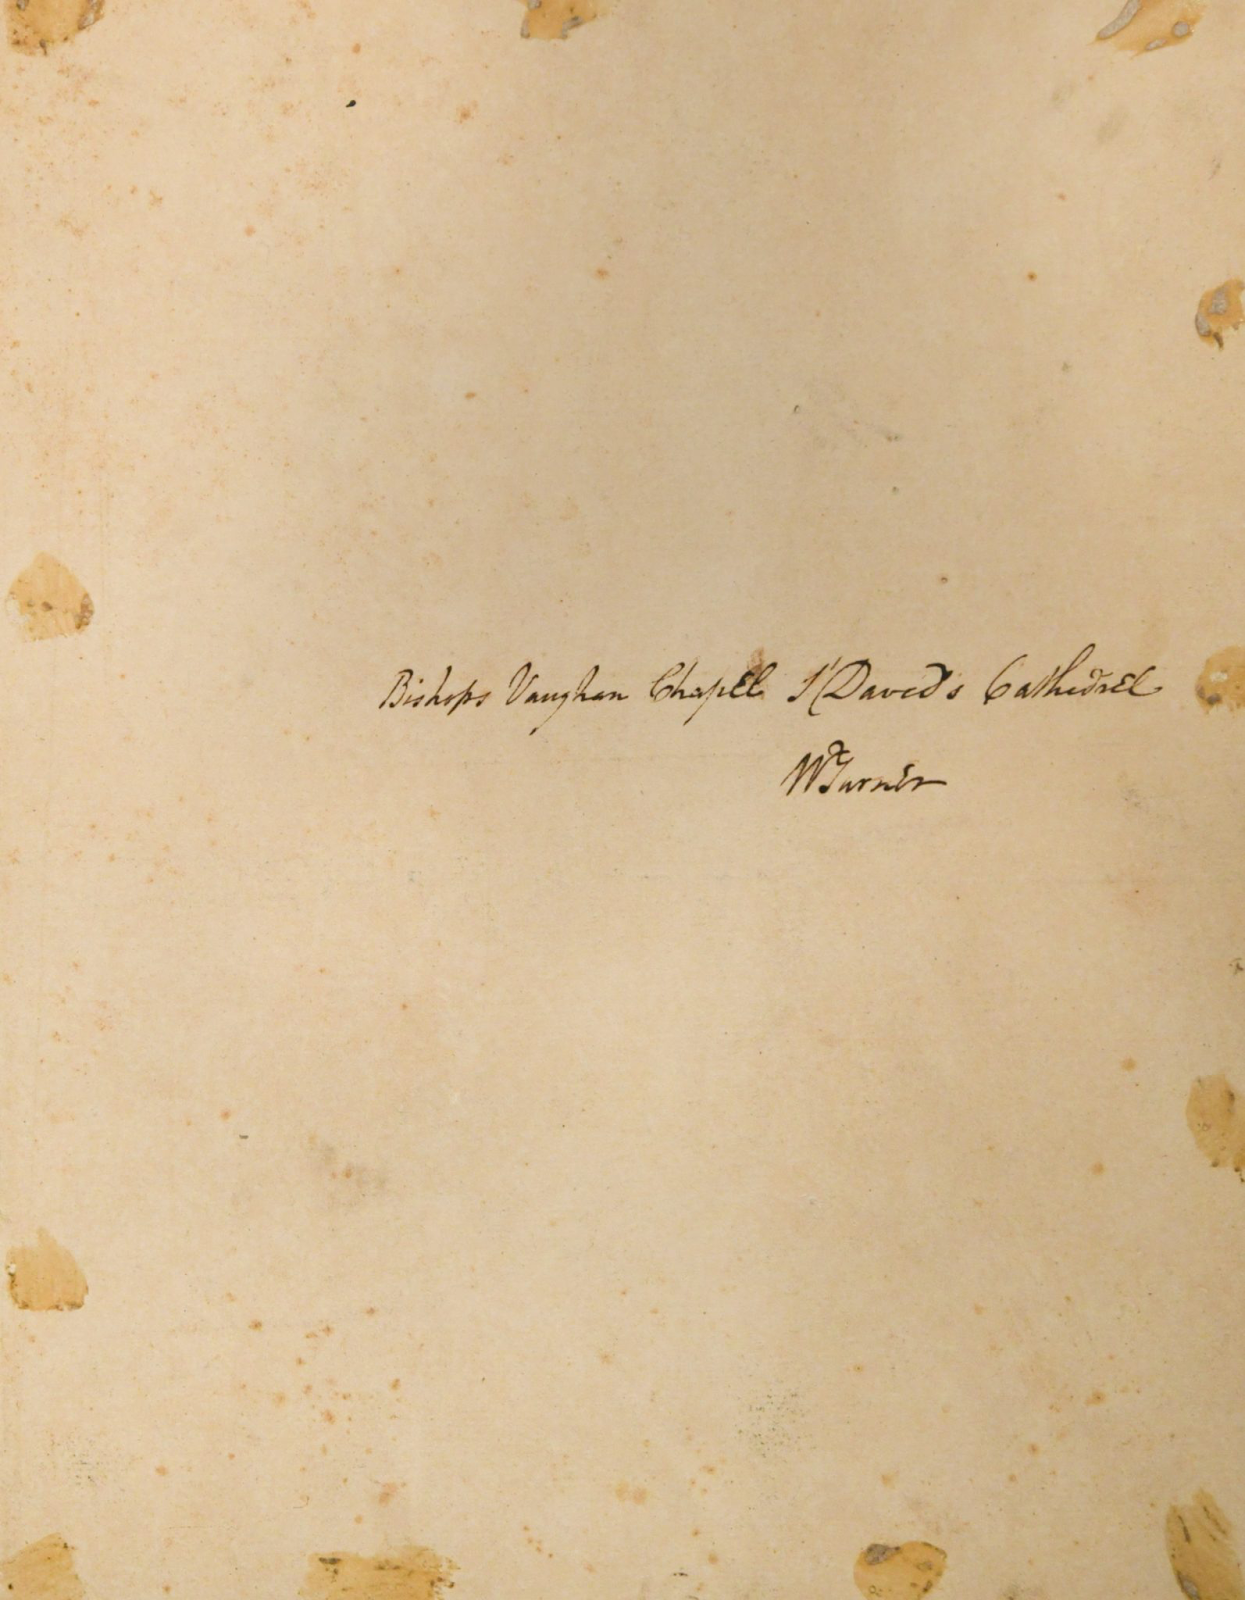 Bishops Vaughan Chapel St David's Cathedral
W Turner